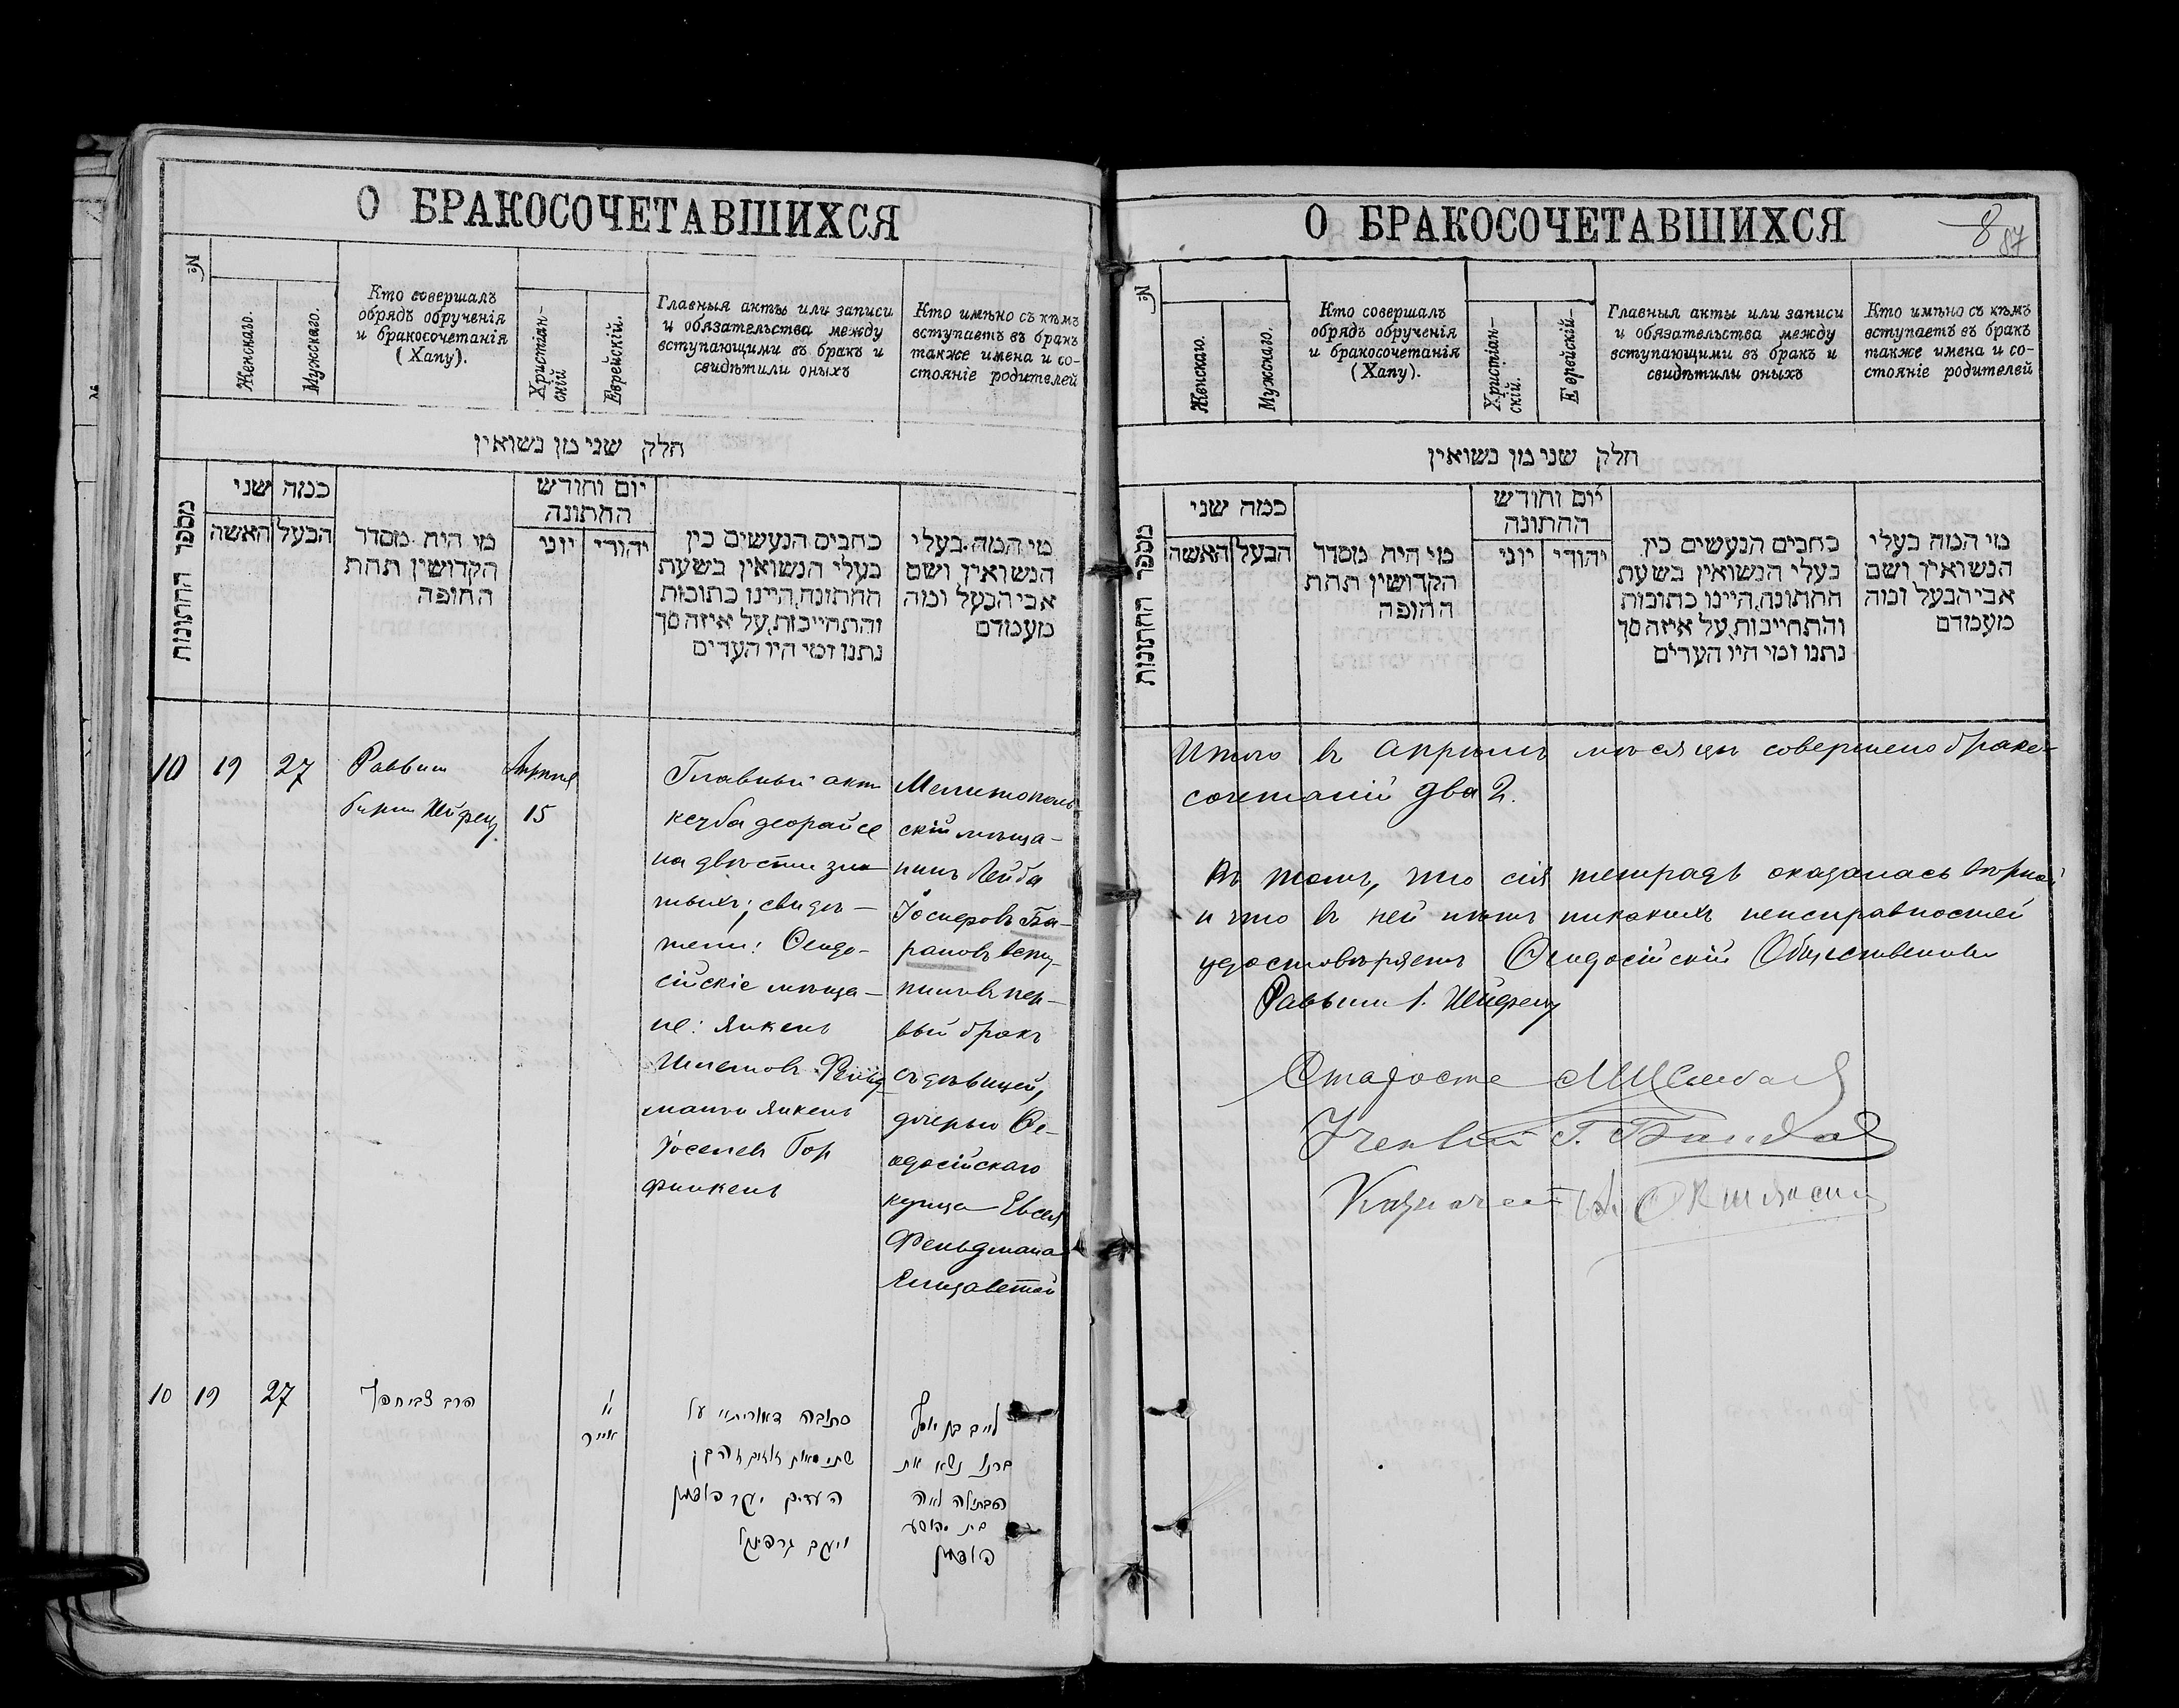 О БРАКОСОЧЕТАВШИХСЯ
№
Женскаго.
Мужскаго.
Кто совершалъ
обрядъ обрученія
и бракосочетанія
(Хапу).
Христіан-
скій
Еврейскій.
Главныя акты или записи
и обязательства между
вступающими въ бракъ и
свидѣтили оныхъ
Кто имѣно съ кѣмъ
вступаетъ въ бракъ
также имена и со-
стояніе родителей
חלק שני מן נשואין
מספר החתונות
כמה שני
הבעל האשה
מי היה מסדר
הקדושין תחת
החופה
יום וחודש
החתונה
יהודי יוני
כתבים הנעשים בין
בעלי הנשואין בשעת
החתונה, היינו כתובות
והתחייבות, על איזה סך
נתנו ומי היו העדים
מי המה בעלי
הנשואין ושם
אבי הבעל ומה
מעמדם
10 19 27
Раввин
Гирш Шифрец
Апрѣля
15
Главный акт
кетба деорайсе
на двѣсти зло
тыхъ; свидѣ-
тели: Ѳеодо-
сійскіе мѣща-
не: Янкель
Шлемовъ Фельд
манъ и Янкель
Іоселев Гор
финкель
Мелитополь
скій мѣща-
нинъ Лейба
Іосифовъ Ба-
рановъ всту-
пилъ въ пер-
вый бракъ
съ дѣвицей,
дочерью Ѳе-
одосійскаго
купца Евсея
Фельдмана
Елизаветой
10 19 27
הרב צבי
א
אייר
כתובה דאורייתא על
שתי מאות זהובים
העדים יעקב פעלדמאן
ויעקב גרפינקל
לייב בן יוסף
נשא את
הבתולה לאה
בת יהושע
פעלדמאן
О БРАКОСОЧЕТАВШИХСЯ
8
87
№
Женскаго.
Мужскаго.
Кто совершалъ
обрядъ обрученія
и бракосочетанія
(Хапу).
Христіан-
скій.
Еврейскій-
Главныя акты или записи
и обязательства между
вступающими въ бракъ и
свидѣтили оныхъ
Кто имѣно съ кѣмъ
вступаетъ въ бракъ
также имена и со-
стояніе родителей
חלק שני מן נשואין
מספר החתונות
כמה שני
הבעל האשה
מי היה מסדר
הקדושין תחת
החופה
יום וחודש
החתונה
יהודי יוני
כתבים הנעשים בין
בעלי הנשואין בשעת
החתונה, היינו כתובות
והתחייבות, על איזה סך
נתנו ומי היו העדים
מי המה בעלי
הנשואין ושם
אבי הבעל ומה
מעמדם
Итого въ Апрѣлѣ мѣсяцѣ совершено брако-
сочетаній два 2.
Въ томъ, что сія тетрадь оказалась вѣрной
и что въ ней нѣтъ никакихъ неисправностей
удостовѣряетъ Ѳеодосійскій Общественный
Раввинъ Г. Шифрец
Староста
Ученый Г.
Казначей